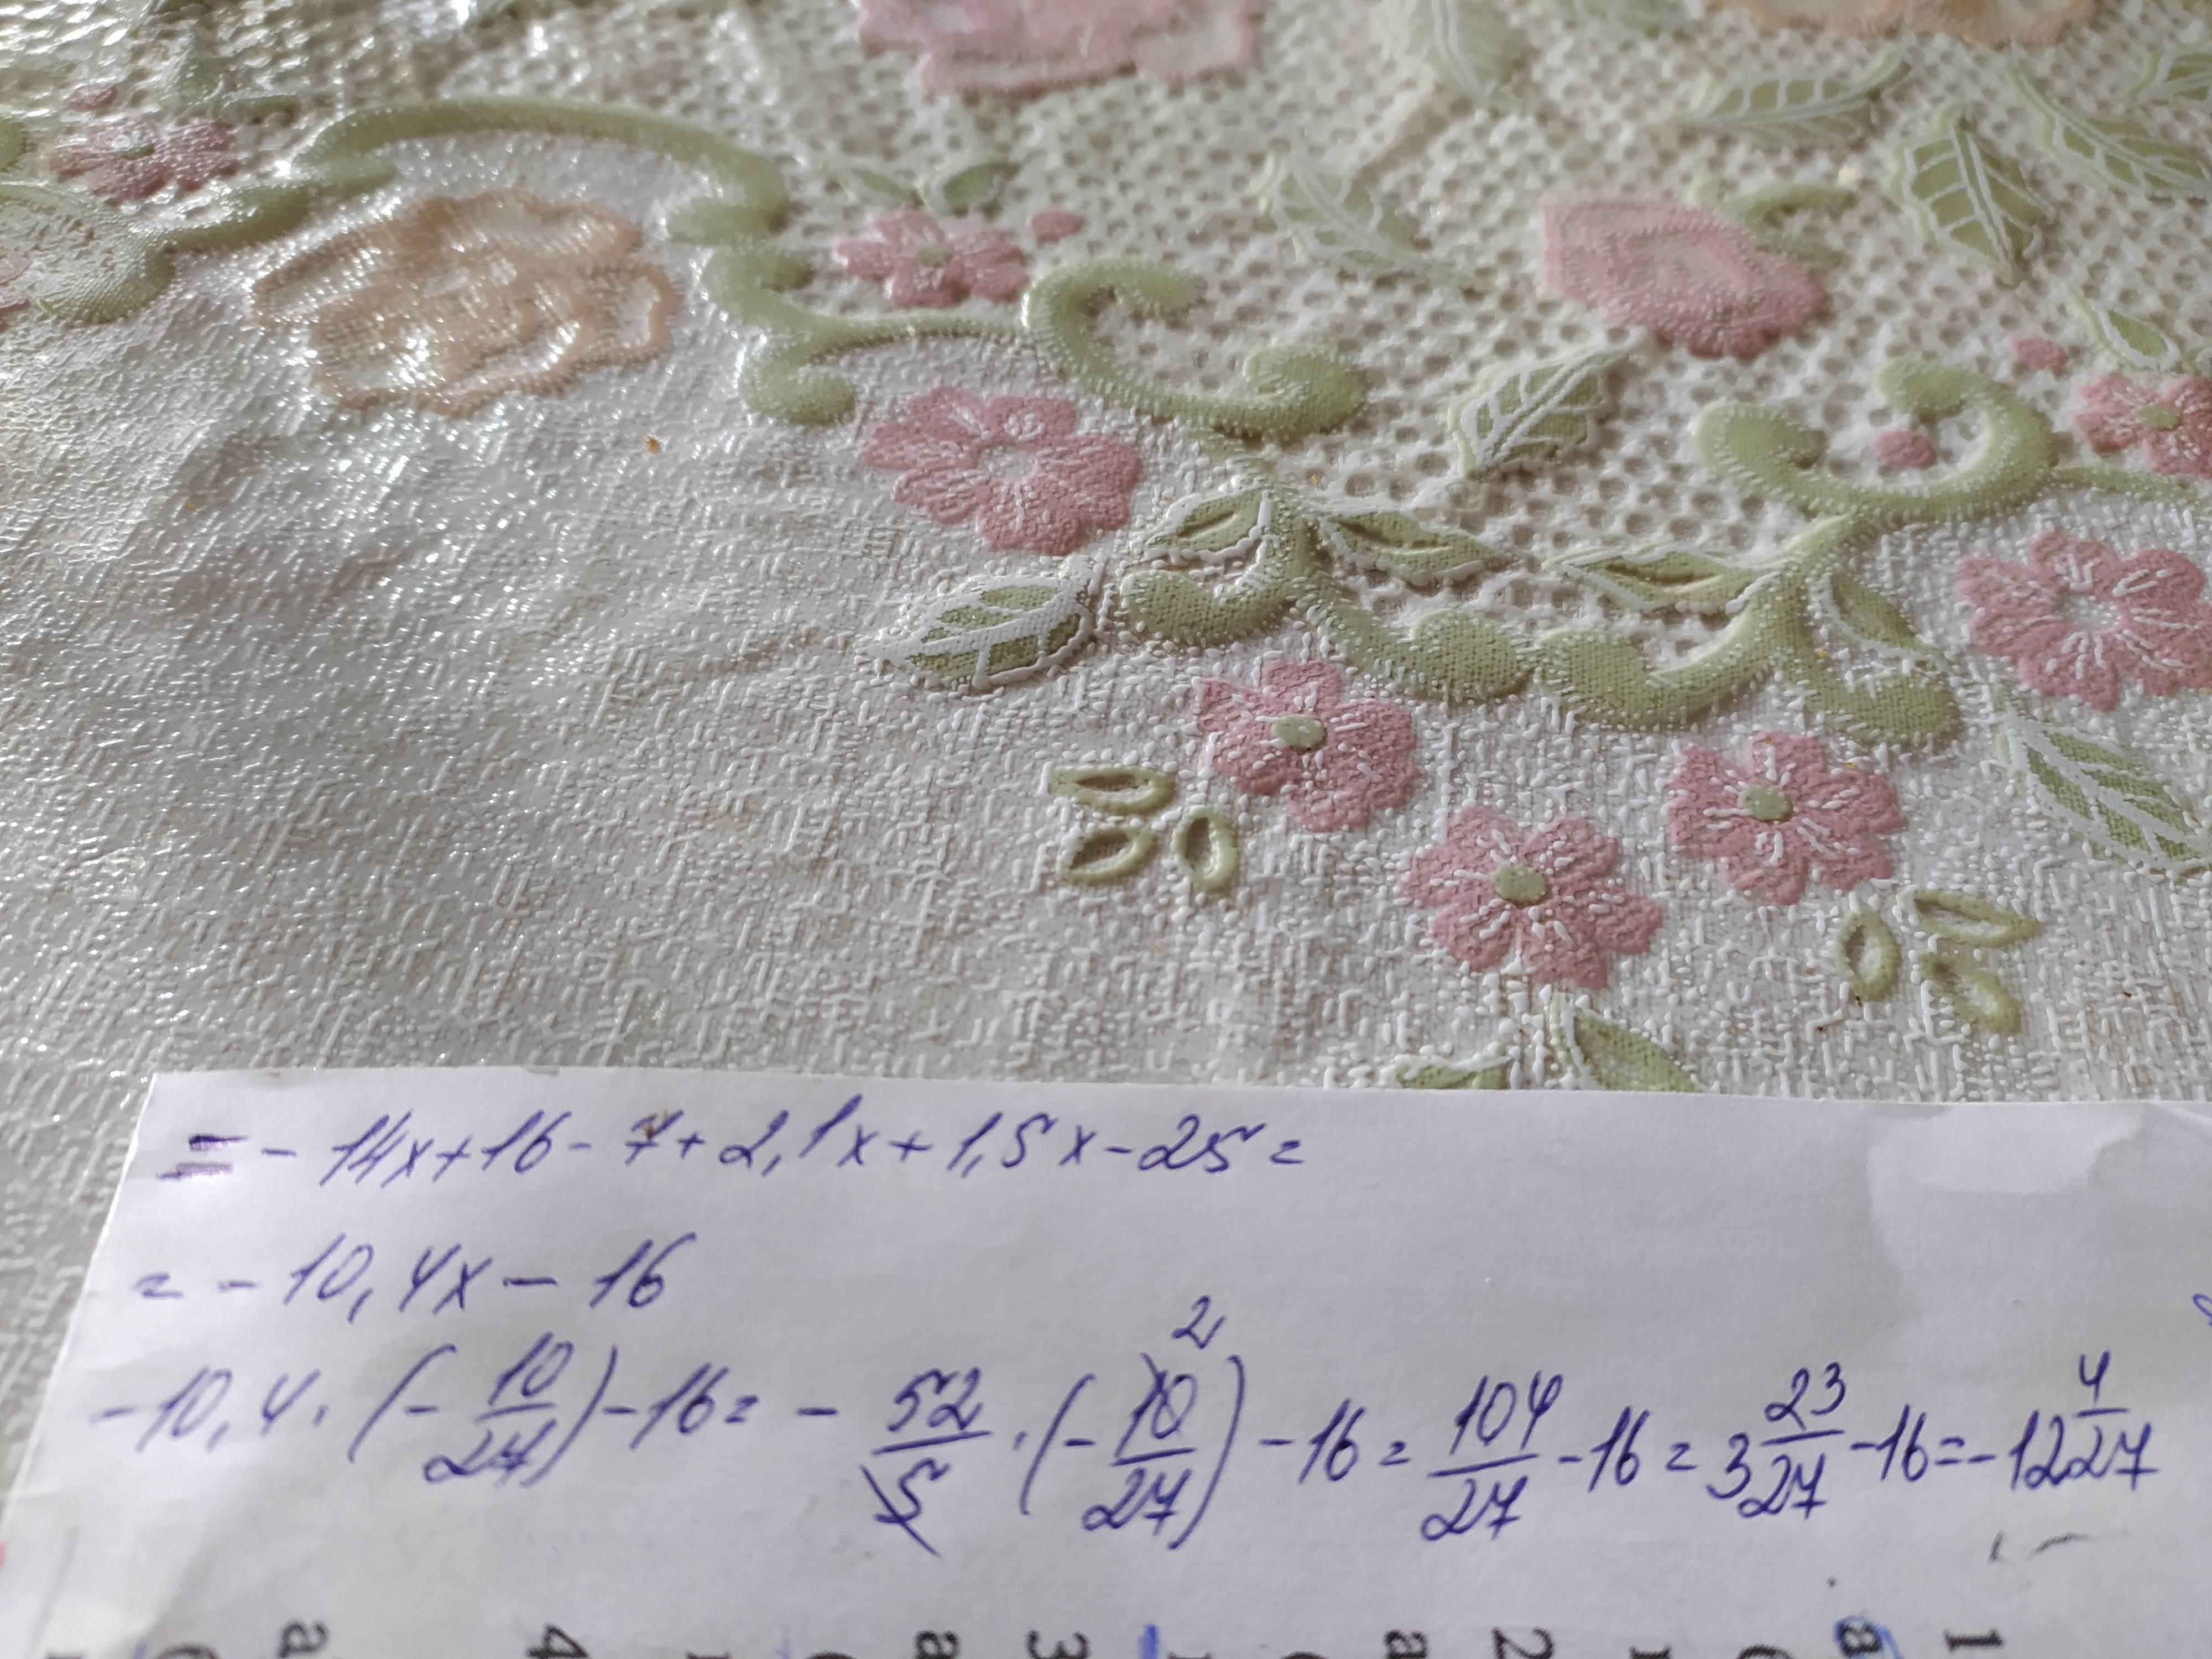 = - 14x+16-7+2,1x+1,5x-25=
= - 10,4x - 16
-10,4·(-10/27)-16= - 52/5·(-10/27)-16=104/27-16=3 23/27-16=-12 4/27
2